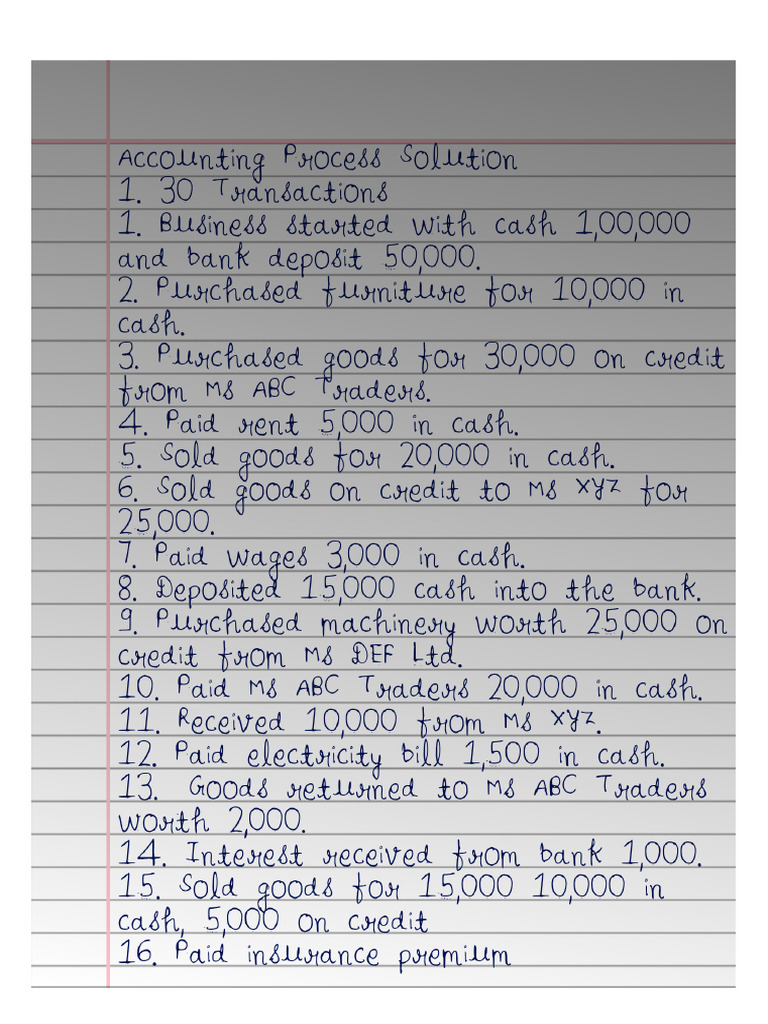 Accounting Process Solution
1. 30 Transactions
1. Business started with cash 1,00,000
and bank deposit 50,000.
2. Purchased furniture for 10,000 in
cash.
3. Purchased goods for 30,000 on credit
from Ms ABC Traders.
4. Paid rent 5,000 in cash.
5. Sold goods for 20,000 in cash.
6. Sold goods on credit to Ms XYZ for
25,000.
7. Paid wages 3,000 in cash.
8. Deposited 15,000 cash into the bank.
9. Purchased machinery worth 25,000 on
credit from Ms DEF Ltd.
10. Paid Ms ABC Traders 20,000 in cash.
11. Received 10,000 from Ms XYZ.
12. Paid electricity bill 1,500 in cash.
13. Goods returned to Ms ABC Traders
worth 2,000.
14. Interest received from bank 1,000.
15. Sold goods for 15,000 10,000 in
cash, 5,000 on credit
16. Paid insurance premium